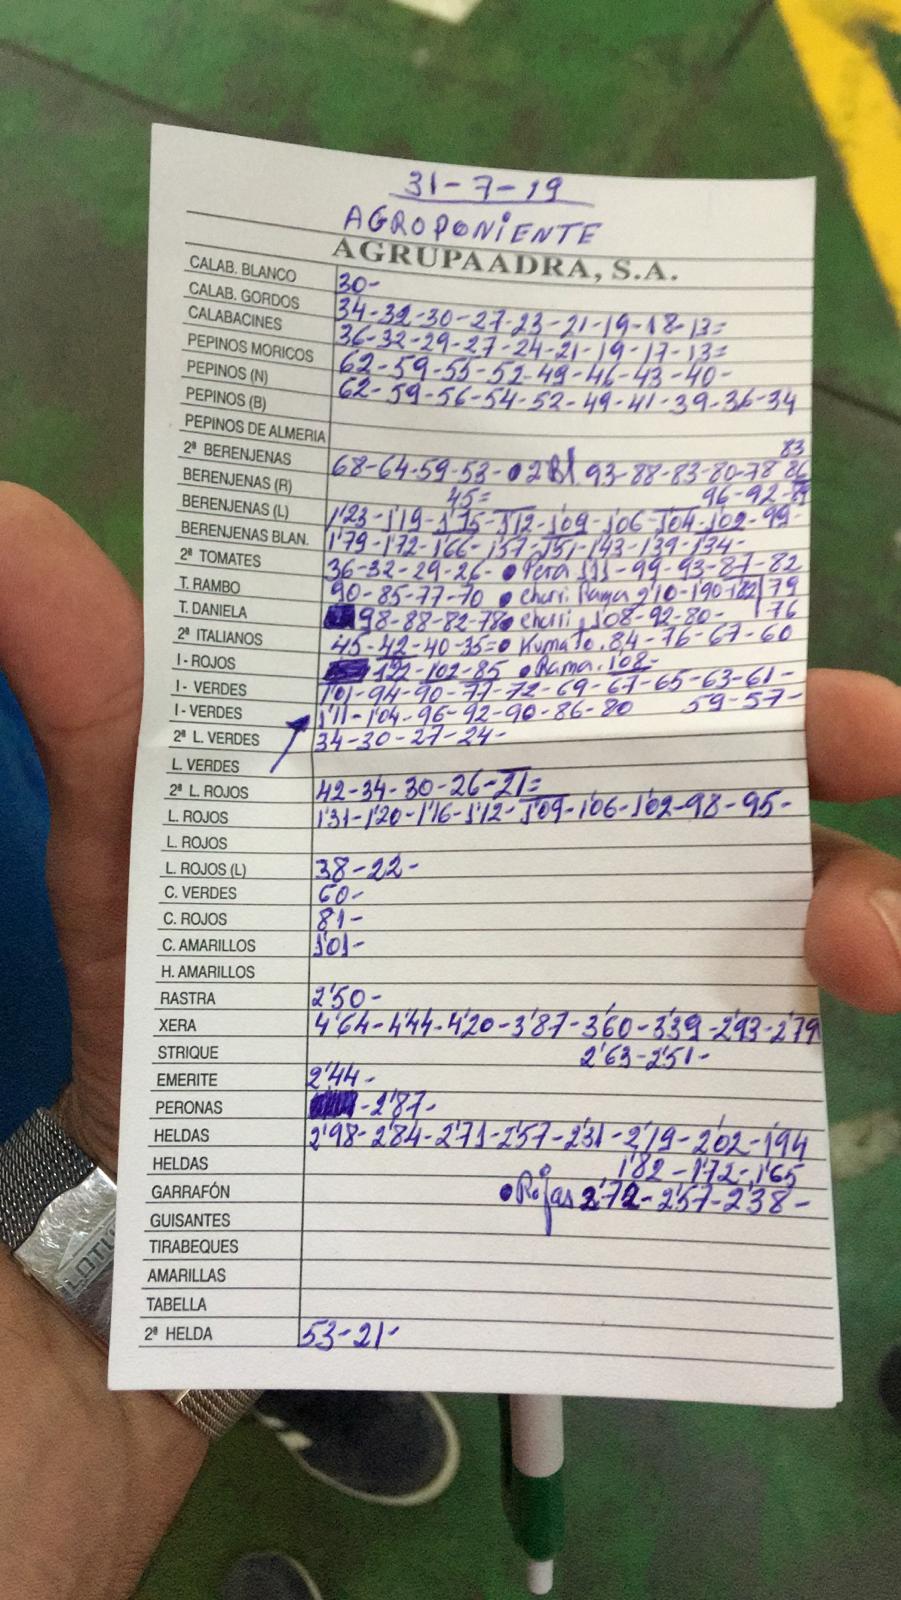 31-7-19
AGROPONiENTE
AGRUPAADRA, S.A.
CALAB. BLANCO 30-
CALAB. GORDOS 34-32-30-27-23-21-19-18-13=
CALABACINES 36-32-29-27-24-21-19-17-13=
PEPINOS MORICOS 62-59-55-52-49-46-43-40-
PEPINOS (N) 62-59-56-54-52-49-41-39-36-34
PEPINOS (B)
PEPINOS DE ALMERIA
83
2ª BERENJENAS 68-64-59-53- • 2 Bl 93-88-83-80-78 86
BERENJENAS (R) 45= 96-92-89
BERENJENAS (L) 1'23-1'19-1'15-1'12-1'09-1'06-1'04-1'02-99-
BERENJENAS BLAN. 1'79-1'72-1'66-1'57-1'51-1'43-1'39-1'34-
2ª TOMATES 36-32-29-26- • Pera 111-99-93-87-82
T. RAMBO 90-85-77-70 • cherri Rama 210-190-182 79
T. DANIELA 98-88-82-78 • cherri 108-92-80- 76
2ª ITALIANOS 45-42-40-35= • Kumato. 84-76-67-60
I - ROJOS 122-102-85 • Rama. 108-
I - VERDES 1'01-94-90-77-72-69-67-65-63-61-
I - VERDES 1'11-1'04-96-92-90-86-80 59-57-
2ª L. VERDES 34-30-27-24-
L. VERDES
2ª L. ROJOS 42-34-30-26-21=
L. ROJOS 1'31-1'20-1'16-1'12-1'09-1'06-1'02-98-95-
L. ROJOS
L. ROJOS (L) 38-22-
C. VERDES 60-
C. ROJOS 81-
C. AMARILLOS 1'01-
H. AMARILLOS
RASTRA 2'50-
XERA 4'64-4'44-4'20-3'87-3'60-3'39-2'93-2'79
STRIQUE 2'63-2'51-
EMERITE 2'44-
PERONAS -2'87-
HELDAS 2'98-2'84-2'71-2'57-2'31-2'19-2'02-1'94
HELDAS 1'82-1'72-1'65
GARRAFÓN • Rojas 272-257-238-
GUISANTES
TIRABEQUES
AMARILLAS
TABELLA
2ª HELDA 53-21-